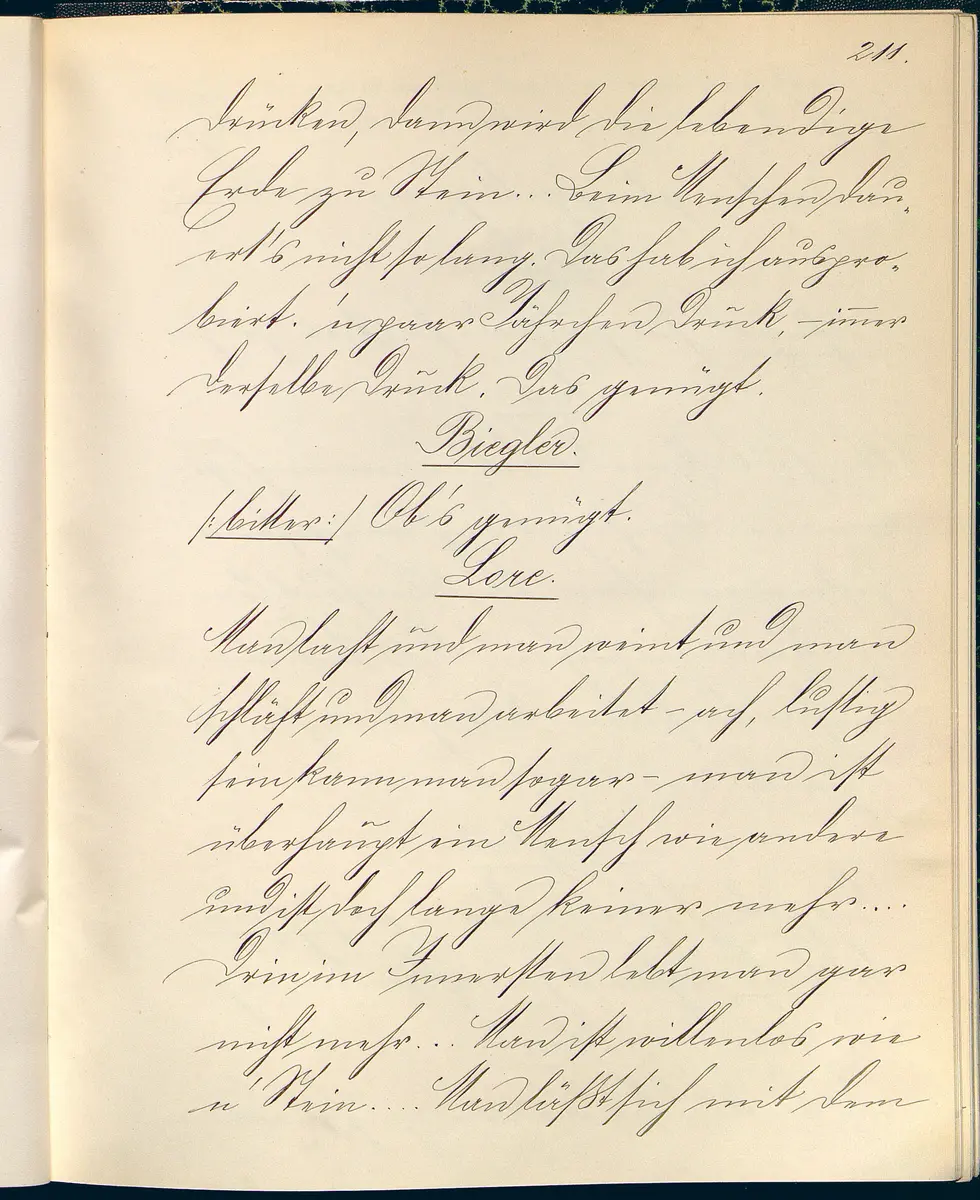 211.
drücken, dann wird die lebendige
Erde zu Stein... Beim Menschen dau-
ert's nicht so lang. Das hab ich auspro-
biert. 'n paar Jährchen Druck, – immer
derselbe Druck. Das genügt.
Biegler.
/:bitter:/ Ob's genügt.
Lore.
Man lacht und man weint und man
schläft und man arbeitet – ach, lustig
sein kann man sogar – man ist
überhaupt ein Mensch wie andere
und ist doch lange keiner mehr....
Drin im Innersten lebt man gar
nicht mehr... Man ist willenlos wie
n' Stein.... Man läßt sich mit dem